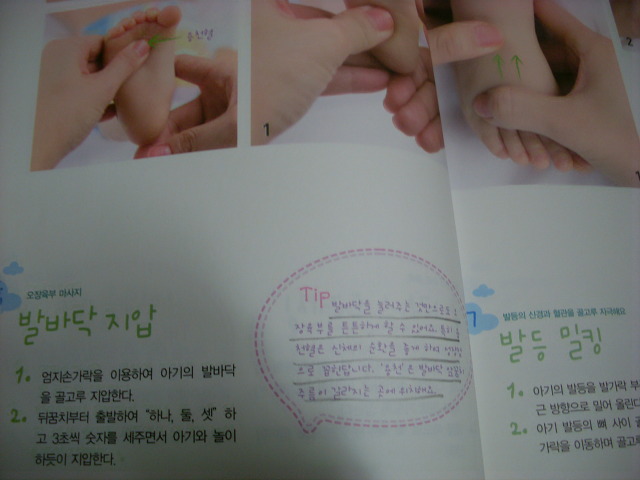 용천혈
1
2
1
오장육부 마사지
발바닥 지압
1. 엄지손가락을 이용하여 아기의 발바닥
을 골고루 지압한다.
2. 뒤꿈치부터 출발하여 "하나, 둘, 셋" 하
고 3초씩 숫자를 세주면서 아기와 놀이
하듯이 지압한다.
Tip 발바닥을 눌러주는 것만으로도
장육부를 튼튼하게 할 수 있어요.
천혈은 신체의 순환을 좋게 하여
'용천'은 발바닥
주름이 갈라지는 곳에 위치해요.
7
발등의 신경과 혈관을 골고루 자극해요
발등 밀킹
1. 아기의 발등을 발가락 부
근 방향으로 밀어 올린다
2. 아기 발등의 뼈 사이
가락을 이동하며 골고루